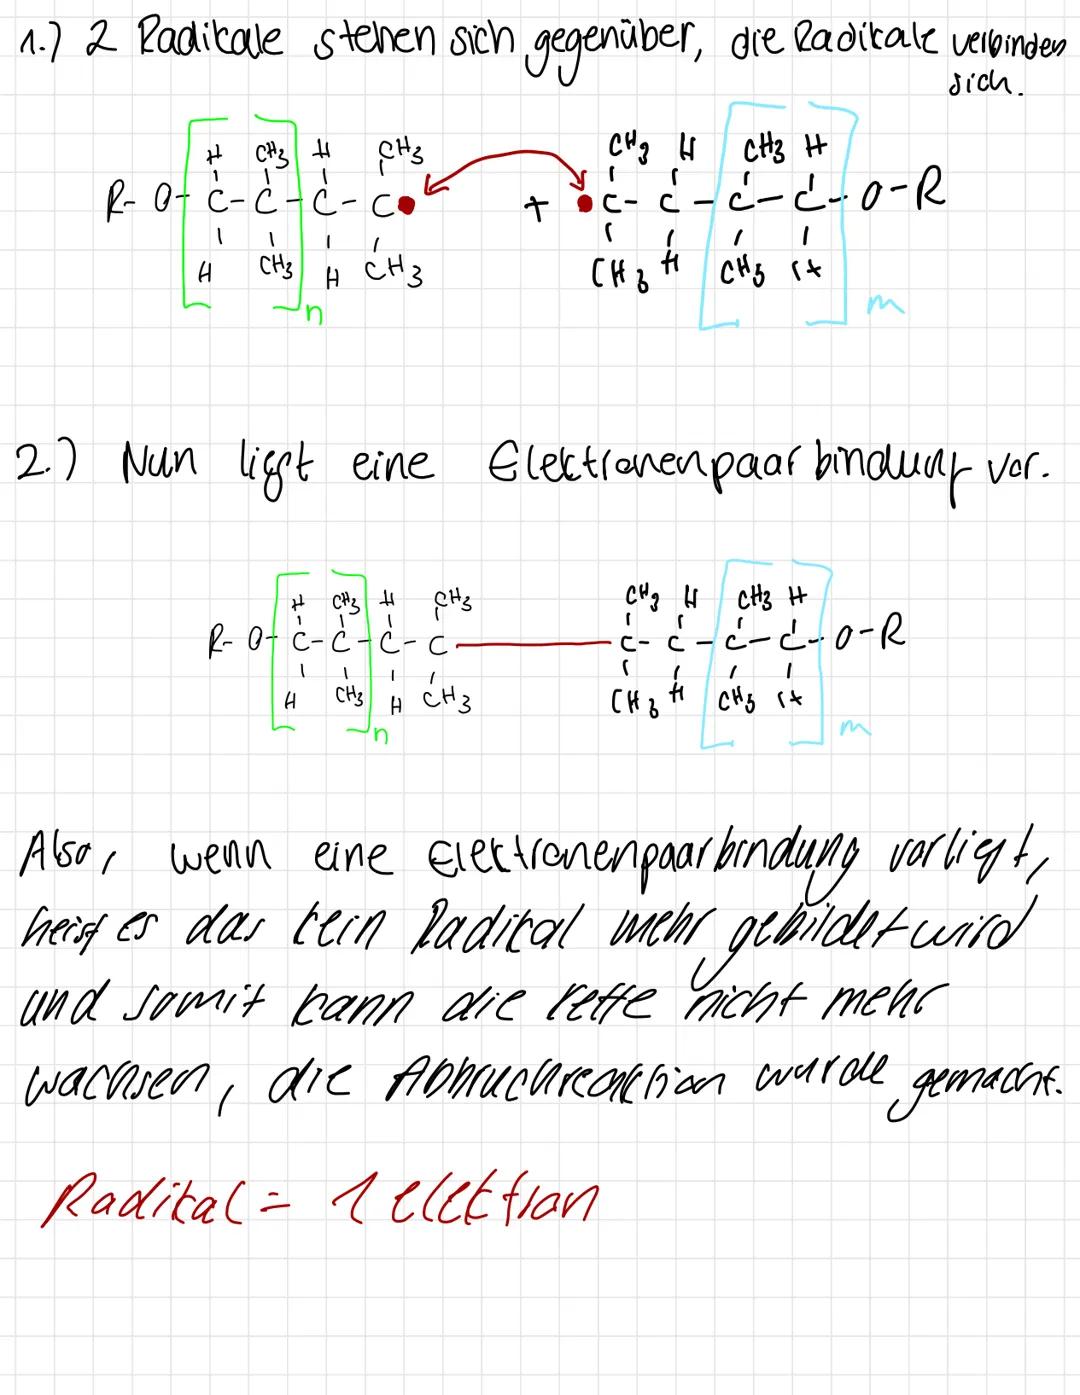 1.) 2 Radikale stehen sich gegenüber, die Radikale verbinden
sich.
H CH3 H CH3 CH3 H CH3 H
R- O- C-C-C-C• + •C-C-C-C-O-R
H CH3 H CH3 CH3 H CH3 H
n m
2.) Nun ligt eine Elektronenpaarbindung vor.
H CH3 H CH3 CH3 H CH3 H
R- O- C-C-C-C-C-C-C-C-O-R
H CH3 H CH3 CH3 H CH3 H
n m
Also, wenn eine Elektronenpaarbindung vorligt,
heist es das kein Radikal mehr gebildet wird
und somit kann die kette nicht mehr
wachsen, die Abbruchreaktion wurde gemacht.
Radikal = 1 elektron